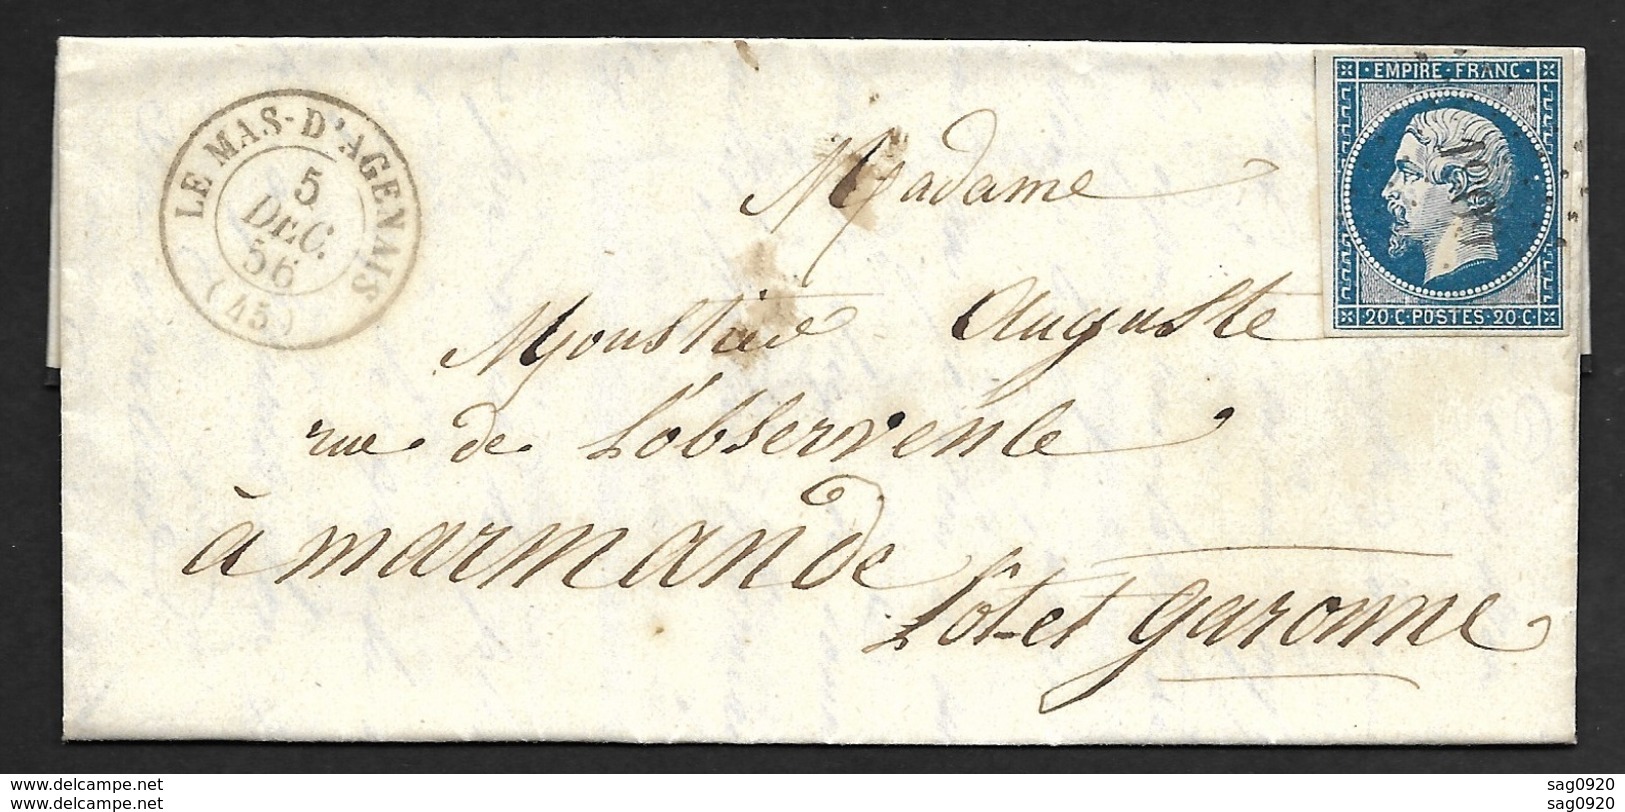 LE MAS-D'AGENAIS
5
DEC.
56
(45)
EMPIRE FRANC
20 C. POSTES. 20 C
Madame
Auguste
rue de L'observence
à marmande
Lot-et garonne
www.delcampe.net
www.delcampe.net
sag0920
sag0920